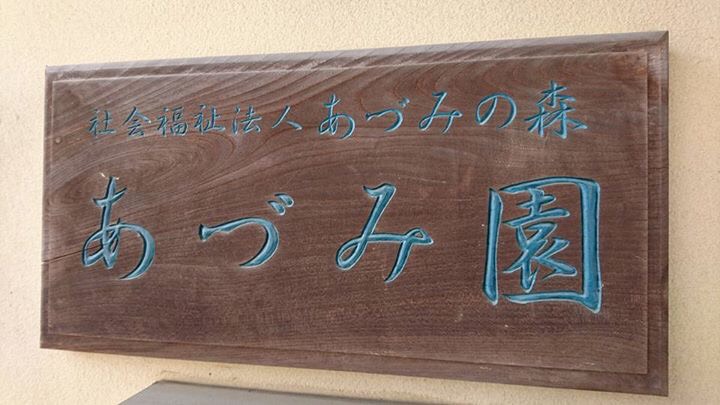 社会福祉法人あづみの森
あづみ園